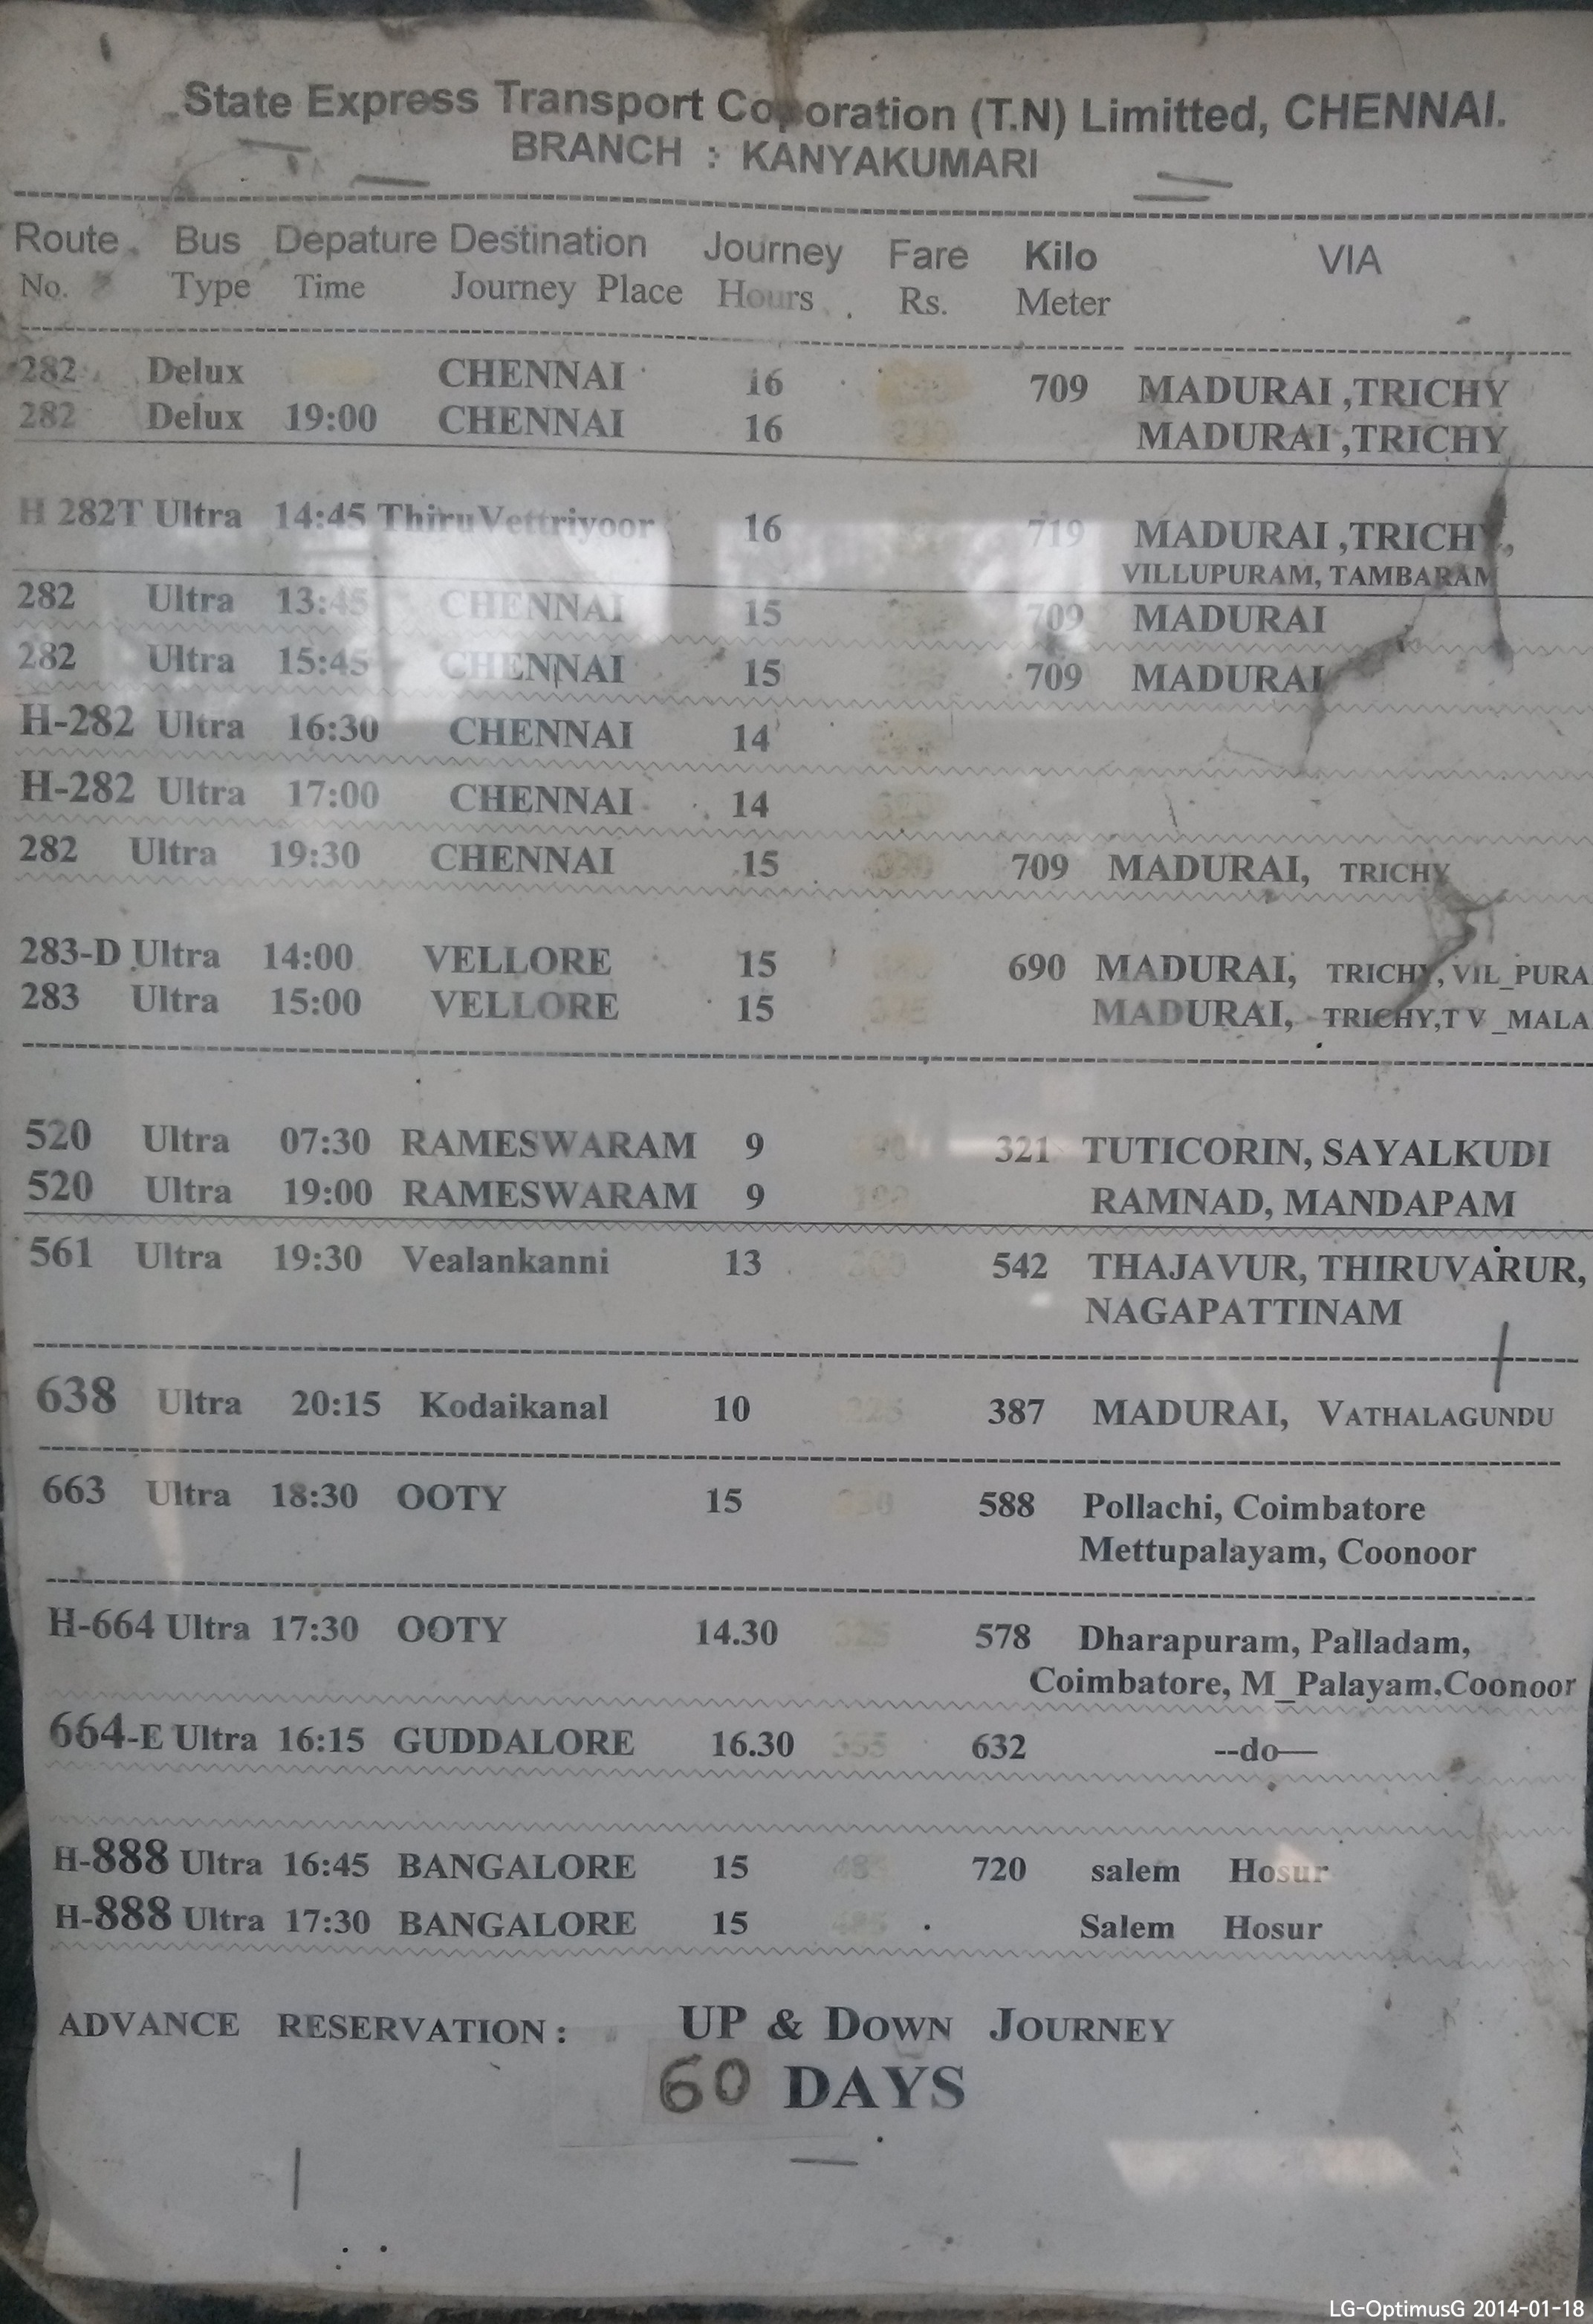 State Express Transport Coporation (T.N) Limitted, CHENNAI.
BRANCH : KANYAKUMARI
Route Bus Depature Destination Journey Fare Kilo VIA
No. Type Time Journey Place Hours Rs. Meter
282 Delux CHENNAI 16 709 MADURAI ,TRICHY
282 Delux 19:00 CHENNAI 16 MADURAI ,TRICHY
H 282T Ultra 14:45 ThiruVettriyoor 16 719 MADURAI ,TRICHY,
VILLUPURAM, TAMBARAM
282 Ultra 13:45 CHENNAI 15 709 MADURAI
282 Ultra 15:45 CHENNAI 15 709 MADURAI
H-282 Ultra 16:30 CHENNAI 14
H-282 Ultra 17:00 CHENNAI 14
282 Ultra 19:30 CHENNAI 15 709 MADURAI, TRICHY
283-D Ultra 14:00 VELLORE 15 690 MADURAI, TRICHY, VIL_PURA
283 Ultra 15:00 VELLORE 15 MADURAI, TRICHY,T V _MALA
520 Ultra 07:30 RAMESWARAM 9 321 TUTICORIN, SAYALKUDI
520 Ultra 19:00 RAMESWARAM 9 RAMNAD, MANDAPAM
561 Ultra 19:30 Vealankanni 13 542 THAJAVUR, THIRUVARUR,
NAGAPATTINAM
638 Ultra 20:15 Kodaikanal 10 387 MADURAI, VATHALAGUNDU
663 Ultra 18:30 OOTY 15 588 Pollachi, Coimbatore
Mettupalayam, Coonoor
H-664 Ultra 17:30 OOTY 14.30 578 Dharapuram, Palladam,
Coimbatore, M_Palayam,Coonoor
664-E Ultra 16:15 GUDDALORE 16.30 632 --do—
H-888 Ultra 16:45 BANGALORE 15 720 salem Hosur
H-888 Ultra 17:30 BANGALORE 15 Salem Hosur
ADVANCE RESERVATION : UP & DOWN JOURNEY
60 DAYS
LG-OptimusG 2014-01-18